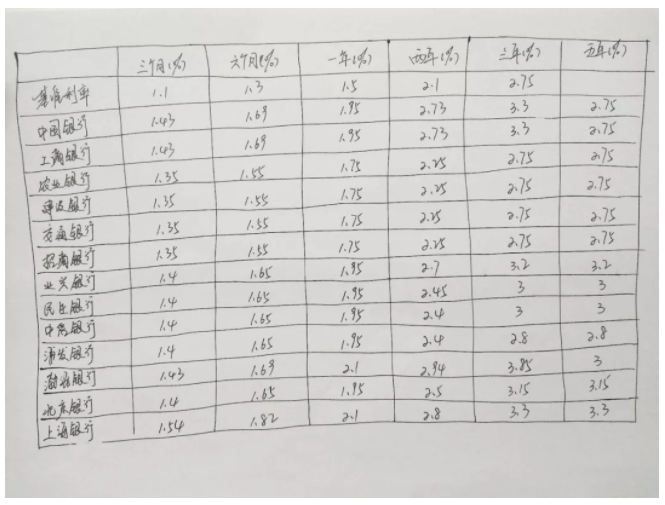 三个月(%) 六个月(%) 一年(%) 两年(%) 三年(%) 五年(%)
基准利率 1.1 1.3 1.5 2.1 2.75
中国银行 1.43 1.69 1.95 2.73 3.3 2.75
工商银行 1.43 1.69 1.95 2.73 3.3 2.75
农业银行 1.35 1.55 1.75 2.25 2.75 2.75
建设银行 1.35 1.55 1.75 2.25 2.75 2.75
交通银行 1.35 1.55 1.75 2.25 2.75 2.75
招商银行 1.35 1.55 1.75 2.25 2.75 2.75
业兴银行 1.4 1.65 1.95 2.7 3.2 3.2
民生银行 1.4 1.65 1.95 2.45 3 3
中信银行 1.4 1.65 1.95 2.4 3 3
浦发银行 1.4 1.65 1.95 2.4 2.8 2.8
渤海银行 1.43 1.69 2.1 2.94 3.85 3
北京银行 1.4 1.65 1.95 2.5 3.15 3.15
上海银行 1.54 1.82 2.1 2.8 3.3 3.3